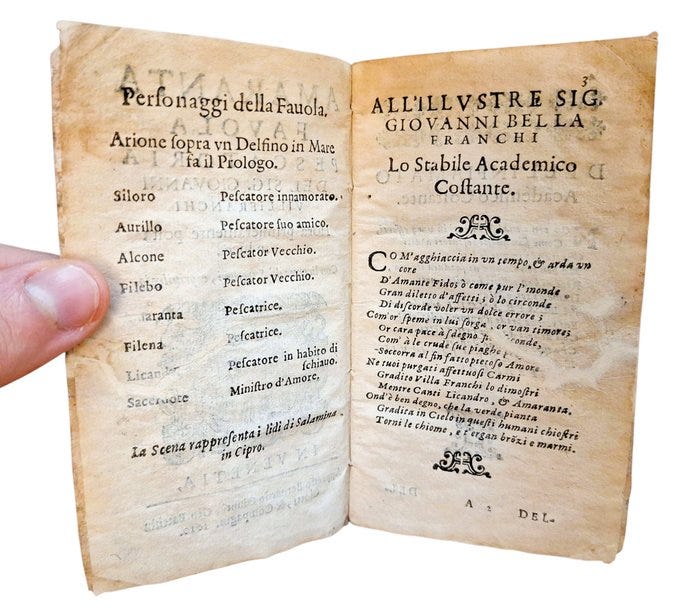 Perſonaggi della Fauola.
Arione ſopra vn Delfino in Mare
fa il Prologo.
Siloro Peſcatore innamorato.
Aurillo Peſcatore ſuo amico.
Alcone Peſcator Vecchio.
Filebo Peſcator Vecchio.
maranta Peſcatrice.
Filena Peſcatrice.
Licandro Peſcatore in habito di
ſchiauo.
Sacerdote Miniſtro d'Amore.
La Scena rappreſenta i lidi di Salamina
in Cipro.
3
ALL'ILLVSTRE SIG.
GIOVANNI BELLA
FRANCHI
Lo Stabile Academico
Coſtante.
COM'agghiaccia in vn tempo, & arda vn
core
D'Amante Fido; ò come pur l'monde
Gran diletto d'affetti; ò lo circonde
Di diſcorde voler vn dolce errore;
Com'or ſpeme in lui ſorga, or van timore;
Or cara pace à ſdegno ſi conde,
Com'à le crude ſue piaghe
Soccorra al fin fatto pietoſo Amore
Ne tuoi purgati affettuoſi Carmi
Gradito Villa Franchi lo dimoſtri
Mentre Canti Licandro, & Amaranta.
Ond'è ben degno, che la verde pianta
Gradita in Cielo in queſti humani chioſtri
Torni le chiome, e t'ergan brōzi e marmi.
A 2 DEL-